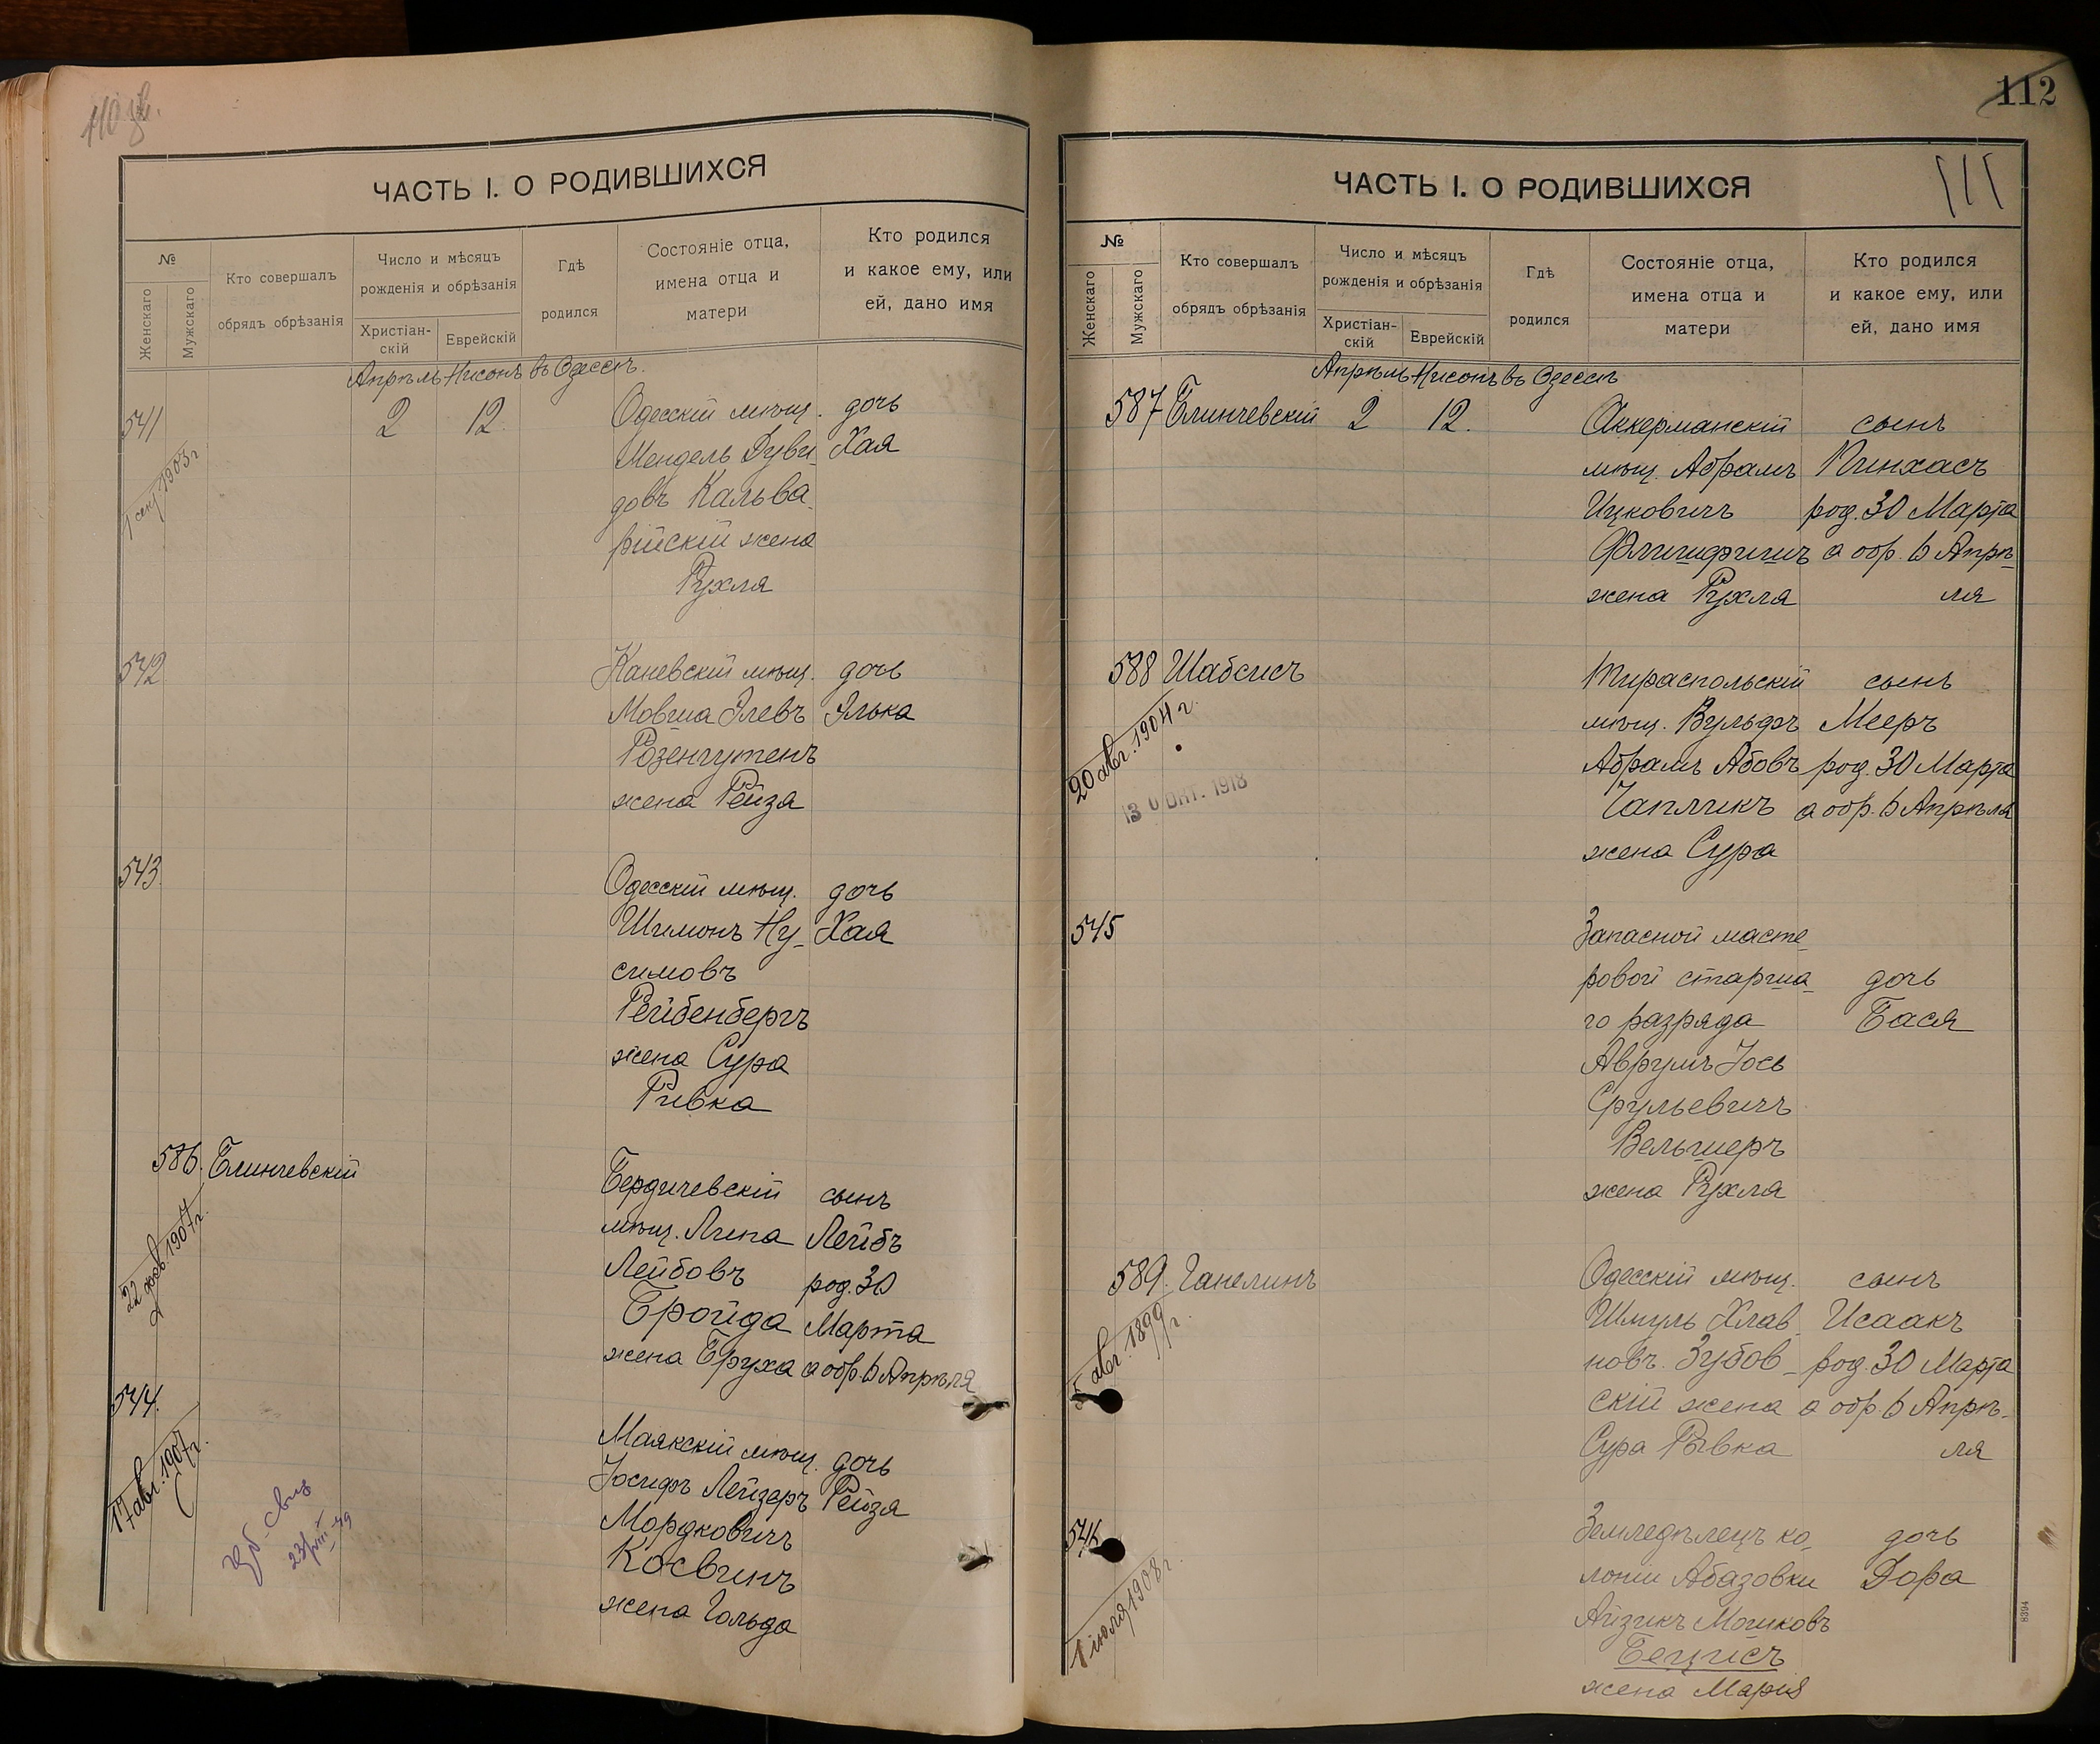 110 об.
ЧАСТЬ I. О РОДИВШИХСЯ
№
Женскаго
Мужскаго
Кто совершалъ
обрядъ обрѣзанія
Число и мѣсяцъ
рожденія и обрѣзанія
Христіан-
скій
Еврейскій
Гдѣ
родился
Состояніе отца,
имена отца и
матери
Кто родился
и какое ему, или
ей, дано имя
Апрѣль Нисонъ въ Одессѣ.
541 2 12. Одесскій мѣщ. дочь
Мендель Дуви- Хая
довъ Кальва-
рійскій жена
Рухля
1903 г
542 Каневскій мѣщ. дочь
Мовша Элевъ Элька
Розенгутенъ
жена Рейза
543 Одесскій мѣщ. дочь
Шимонъ Ну- Хая
симовъ
Рейбенбергъ
жена Сура
Ривка
586. Блинчевскій Бердичевскій сынъ
мѣщ. Липа Лейбъ
Лейбовъ род. 30
Бройда Марта
жена Бруха а обр. 6 Апрѣля
22 фев. 1907 г.
544. Маякскій мѣщ. дочь
Іосифъ Лейзеръ Рейза
Мордковичъ
Косвинъ
жена Гольда
17 авг. 1907 г.
23/VIII-49
112
111
ЧАСТЬ I. О РОДИВШИХСЯ
№
Женскаго
Мужскаго
Кто совершалъ
обрядъ обрѣзанія
Число и мѣсяцъ
рожденія и обрѣзанія
Христіан-
скій
Еврейскій
Гдѣ
родился
Состояніе отца,
имена отца и
матери
Кто родился
и какое ему, или
ей, дано имя
Апрѣль Нисонъ въ Одессѣ
587 Блинчевскій 2 12. Аккерманскій сынъ
мѣщ. Абрамъ Пинхасъ
Ицковичъ род. 30 Марта
а обр. 6 Апрѣ-
жена Рухля ля
588 Шабсисъ Тираспольскій сынъ
мѣщ. Вульфъ Мееръ
Абрамъ Абовъ род. 30 Марта
Чапликъ а обр. 6 Апрѣля
жена Сура
20 авг. 1904 г.
13 ОКТ. 1918
545 Запасной масте-
ровой старша- дочь
го разряда Бася
Аврумъ Іось
Срульевичъ
Вельшеръ
жена Рухля
589. Ганелинъ Одесскій мѣщ. сынъ
Шмуль Хлав- Исаакъ
новъ Зубов- род. 30 Марта
скій жена а обр. 6 Апрѣ-
Сура Рывка ля
5 авг. 1899 г.
546 Земледѣлецъ ко- дочь
лоніи Абазовки Дора
Айзикъ Мошковъ
Бецисъ
жена Марія
1 іюля 1908 г.
8394